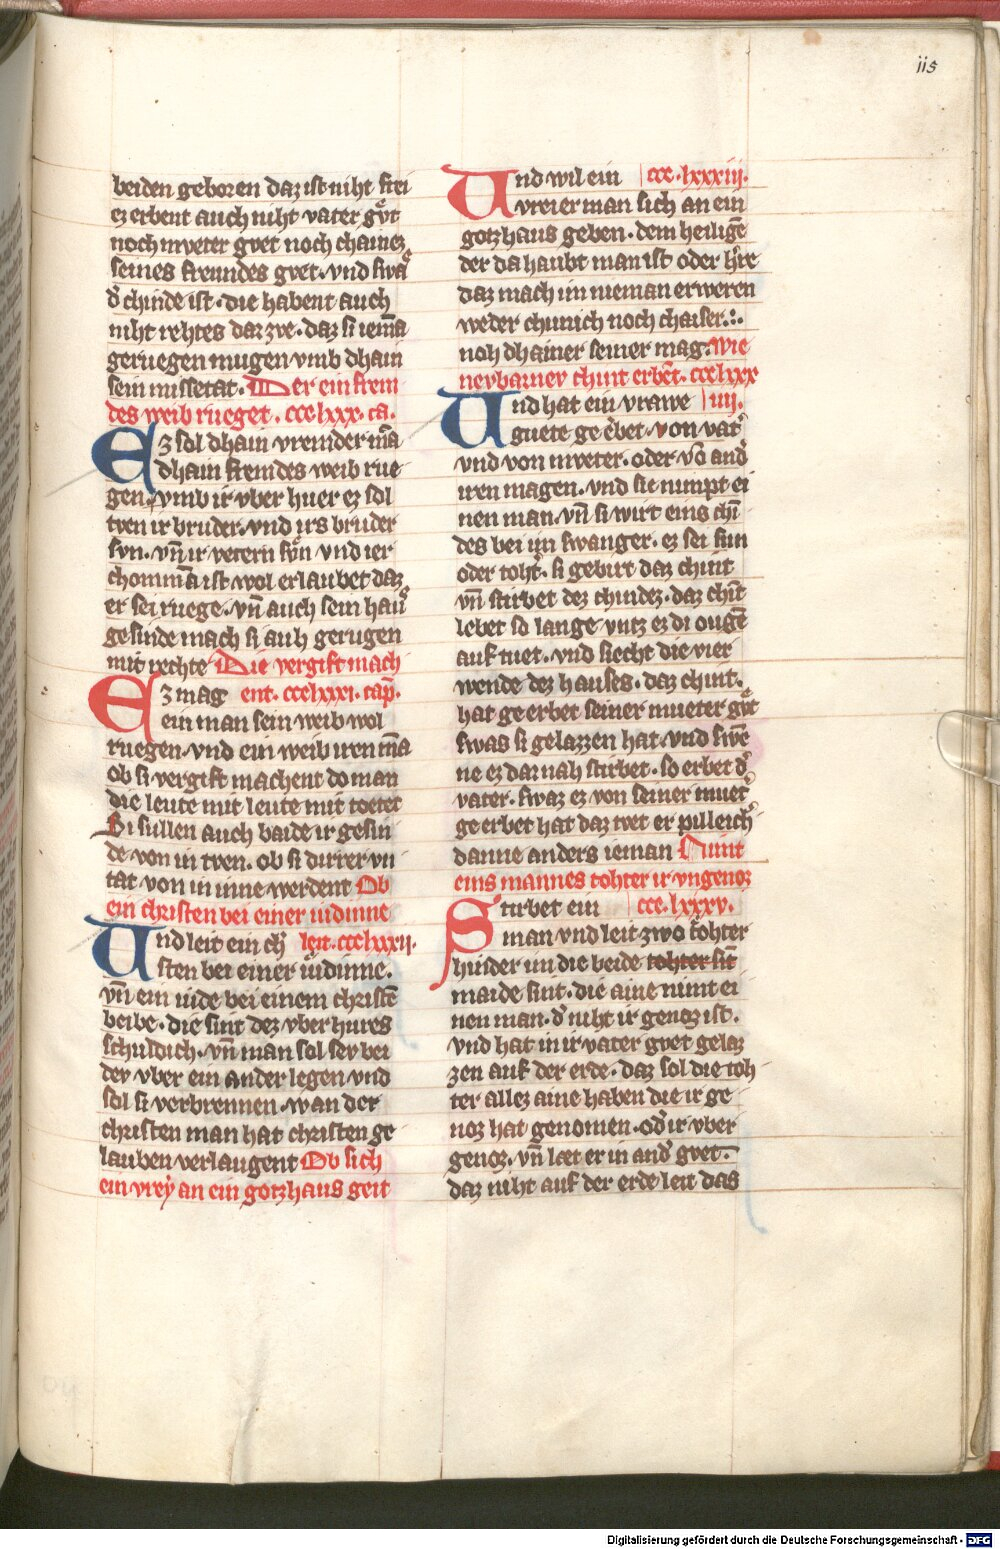 115
beiden geboren daz ist niht frei
ez erbent auch niht vater gvͦt
noch mveter gvet noch chainez
seines freundes gvet · vnd swaʼ
dʼ chinde ist · die habent auch
niht rehtes dar zve · daz si iem̄a
geruegen mugen vmb dhain
sein missetat · Der ein frem
des weib rueget · ccc lxxx · ca ·
Ez sol dhain vremder m̄a
dhain fremdes weib rue
gen · vmb ir vber huer ez sol
tven ir bruder · vnd irs bruder
svn · vn̄ ir vetern svͤn vnd ier
chomm̄a ist wol erlaubet daz
er sei ruege · vn̄ auch sein hauʼ
gesinde mach si auh gerugen
mit rechte Die vergift mach
Ez mag ent · ccc lxxxi · cap̄ ·
ein man sein weib wol
ruegen · vnd ein weib iren m̄a
ob si vergift machent do man
die leute mit leute mit toetet
Si sullen auch baide ir gesin
de von in tven · ob si dirrer vn
tat von in inne werdent Ob
ein christen bei einer iudinne
Vnd leit ein chʼ leit · ccc lxxxii ·
sten bei einer iuͤdinne ·
vn̄ ein iude bei einem christē
beibe · die sint dez vber hures
schuldich · vn̄ man sol sev bei
dev vber ein ander legen vnd
sol si verbrennen · wan der
christen man hat christen ge
lauben verlaugent Ob sich
ein vreẏ an ein gotzhaus geit
Vnd wil ein ccc · lxxxiii ·
vreier man sich an ein
gotzhaus geben · dem heiligē
der da haubt man ist oder hʼre
daz mach im nieman erweren
weder chunich noch chaiser ·:·
noh dhainer seiner mag · Wie
nevbarnev chint erbēt · ccc lxxx
Vnd hat ein vrawe iiii ·
guete geerbet · von vatʼ
vnd von mveter · oder vō andʼ
iren magen · vnd sie nimpt ei
nen man · vn̄ si wirt eins chī
des bei im swanger · ez sei sun
oder tohtʼ · si gebirt daz chint
vn̄ stirbet dez chindez · daz chīt
lebet so lange vntz ez di ougē
auf tuet · vnd siecht die vier
wende dez hauses · daz chint ·
hat geerbet seiner mueter gvͦt
swas si gelazzen hat · vnd swē
ne ez dar nah stirbet · so erbet dʼ
vater · swaz ez von seiner muetʼ
geerbet hat daz tvet er pilleich
danne anders ieman Nimt
eins mannes tohter ir vngenoz
Stirbet ein ccc · lxxxv ·
man vnd leit zwo tohter
hinder im die beide tohter sīt
maide sint · die aine nimt ei
nen man · dʼ niht ir genoz ist ·
vnd hat in ir vater gvet gelaz
zen auf der erde · daz sol die toh
ter allez aine haben die ir ge
noz hat genomen · odʼ ir vber
genoz · vn̄ læt er in andʼ gvet ·
daz niht auf der erde leit das
Digitalisierung gefördert durch die Deutsche Forschungsgemeinschaft - DFG